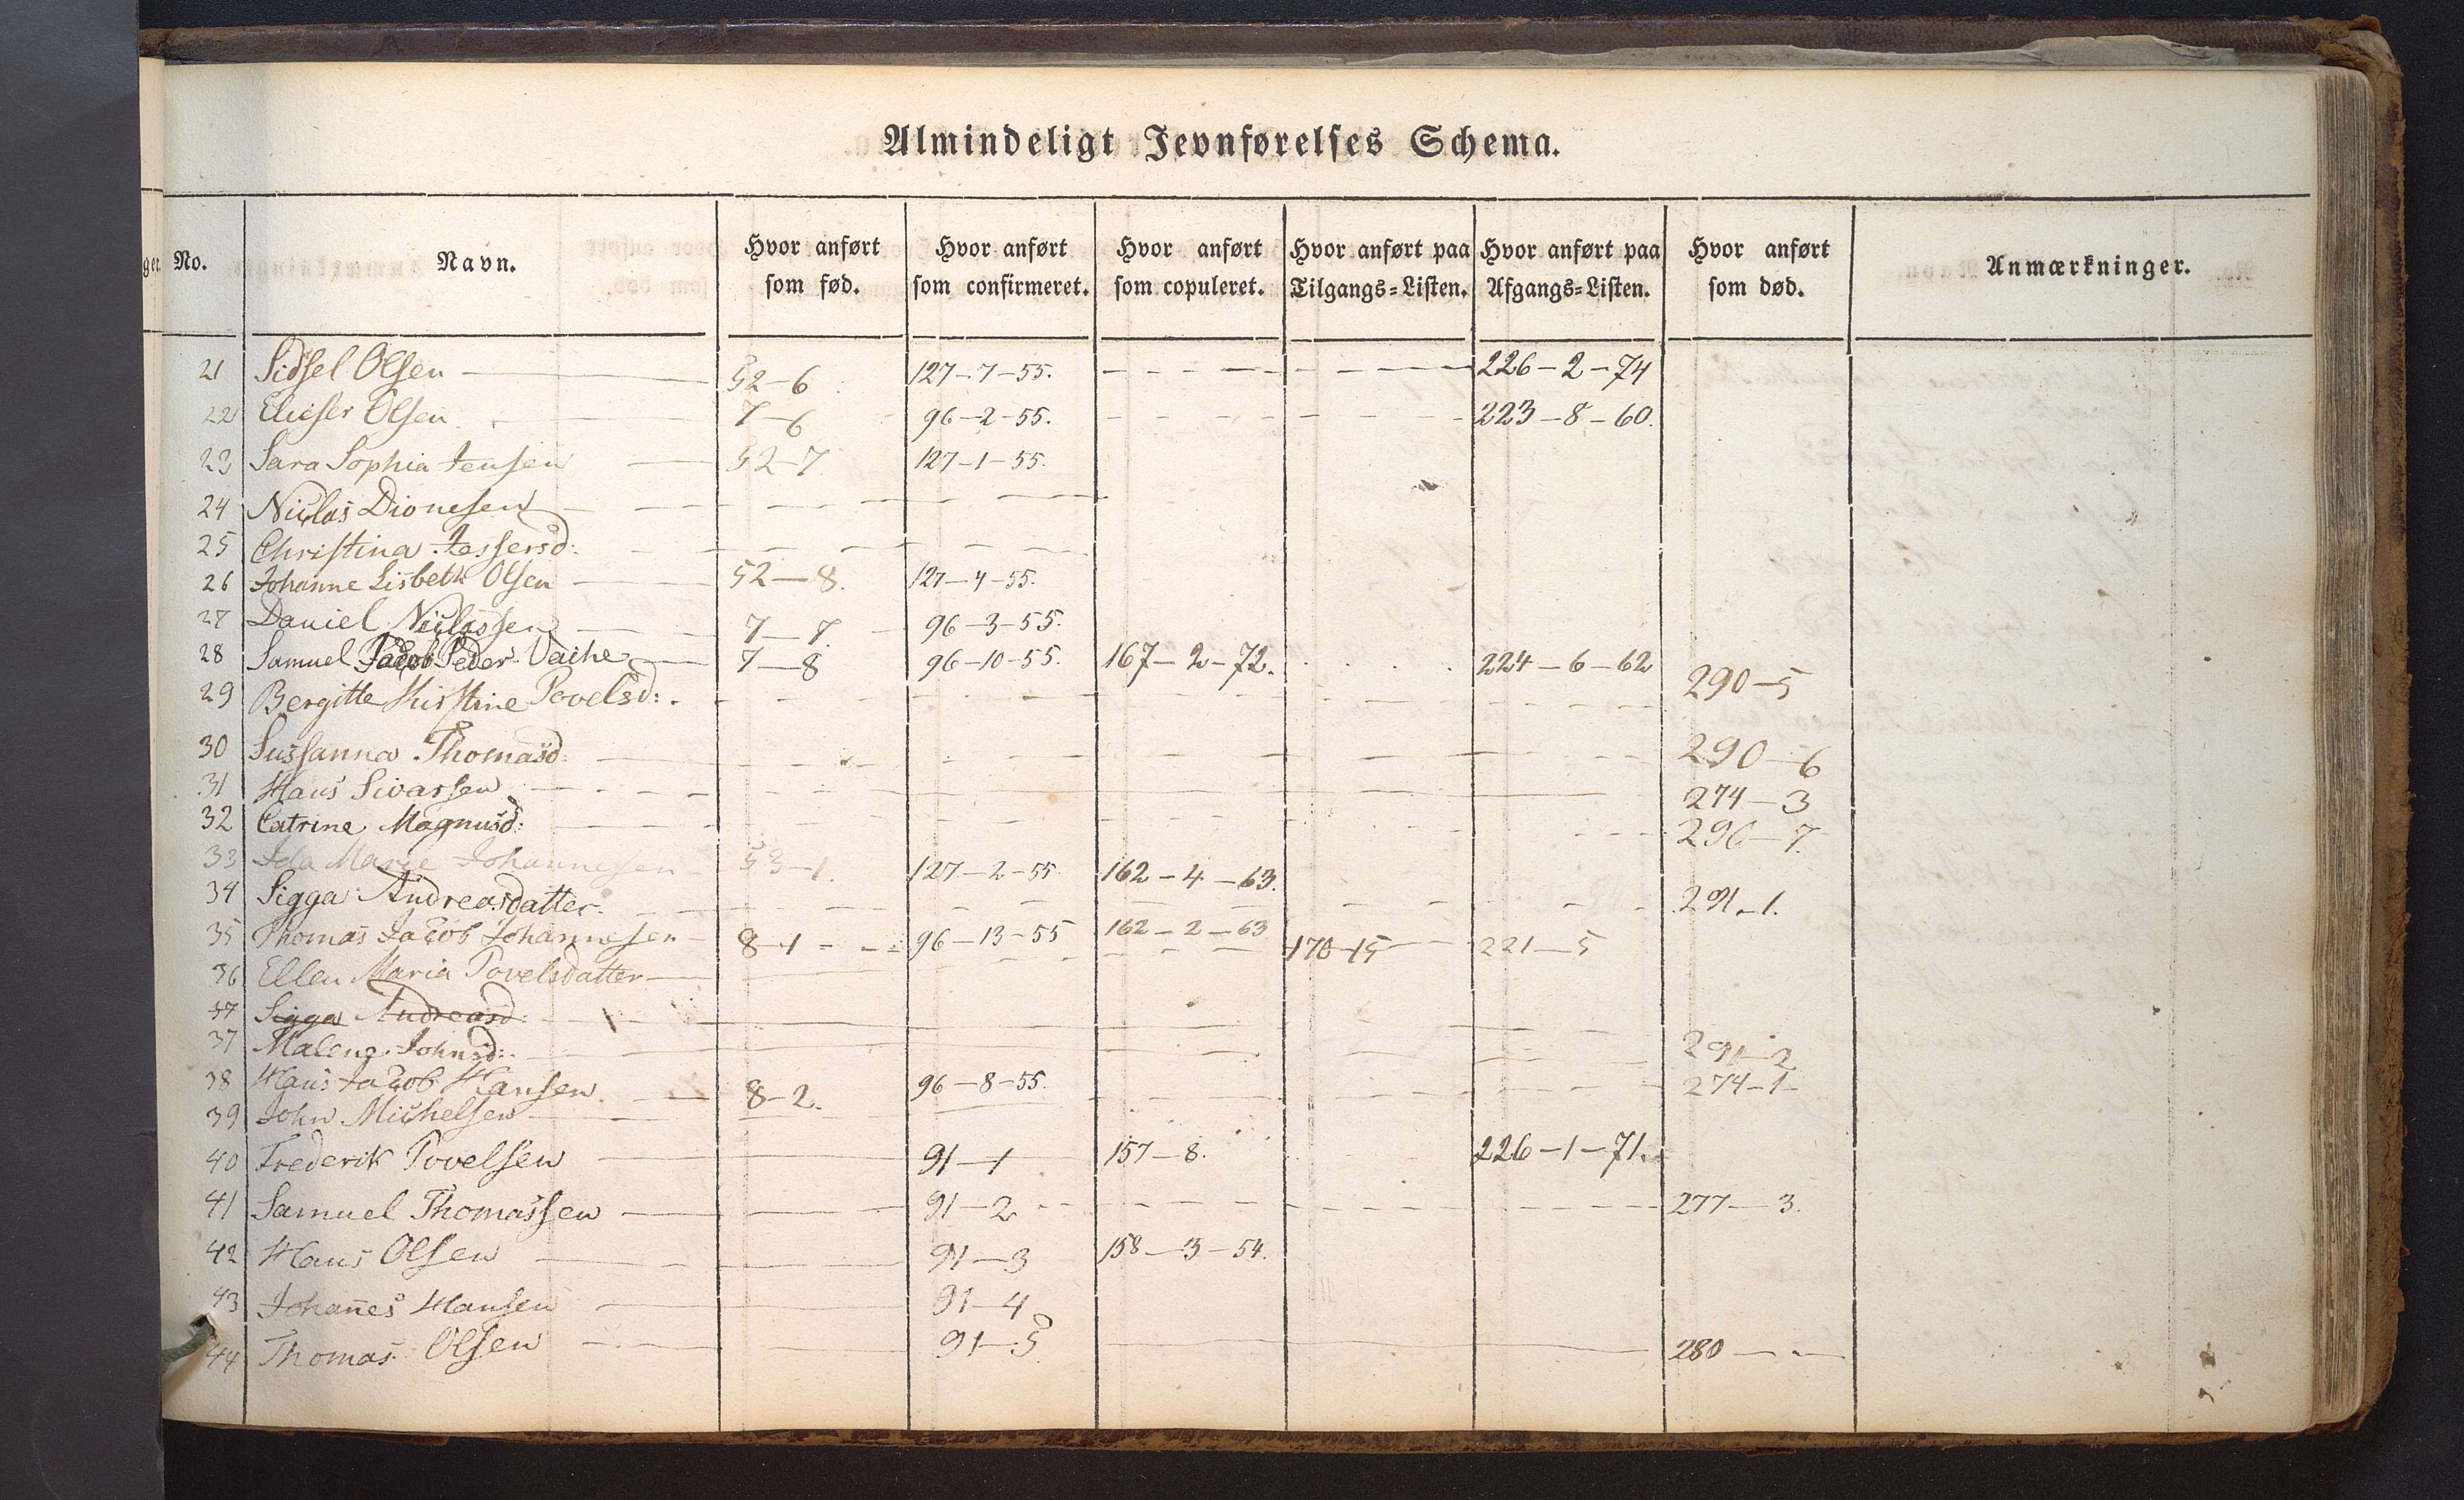 Almindeligt Jevnførelses Schema.
No. Navn. Hvor anført som fød. Hvor anført som confirmeret. Hvor anført som copuleret. Hvor anført paa Tilgangs=Listen. Hvor anført paa Afgangs=Listen. Hvor anført som død. Anmærkninger.
21 Sidsel Olsen 52-6 127-7-55. 226-2-74
22 Elieser Olsen 7-6 96-2-55. 223-8-60.
23 Sara Sophia Jensen 52-7 127-1-55.
24 Niclas Dionesen
25 Christina Jessersd:
26 Johanne Lisbeth Olsen 52-8. 127-4-55.
27 Daniel Niclassen 7-7 96-3-55.
28 Samuel Jacob Peder Vaihe 7-8 96-10-55. 167-2-72. 224-6-62
29 Bergitte Kirstine Povelsd: 290-5
30 Sussanna Thomasd: 290-6
31 Hans Sivarsen 274-3
32 Catrine Magnusd: 290-7.
33 Ida Marie Johannesen 53-1. 127-2-55 162-4-63.
34 Sigga Andreasdatter. 291-1.
35 Thomas Jacob Johannesen 8-1 96-13-55 162-2-63 170-15 221-5
36 Ellen Maria Povelsdatter
37 Sigga Andreasd:
37 Malene Johnsd: 291-2
38 Hans Jacob Hansen 8-2. 96-8-55. 274-1
39 John Michelsen
40 Frederik Povelsen 91-1 157-8. 226-1-71.
41 Samuel Thomassen 91-2 277-3.
42 Hans Olsen 91-3 158-3-54.
43 Johanes Hansen 91-4
44 Thomas Olsen 91-5 280